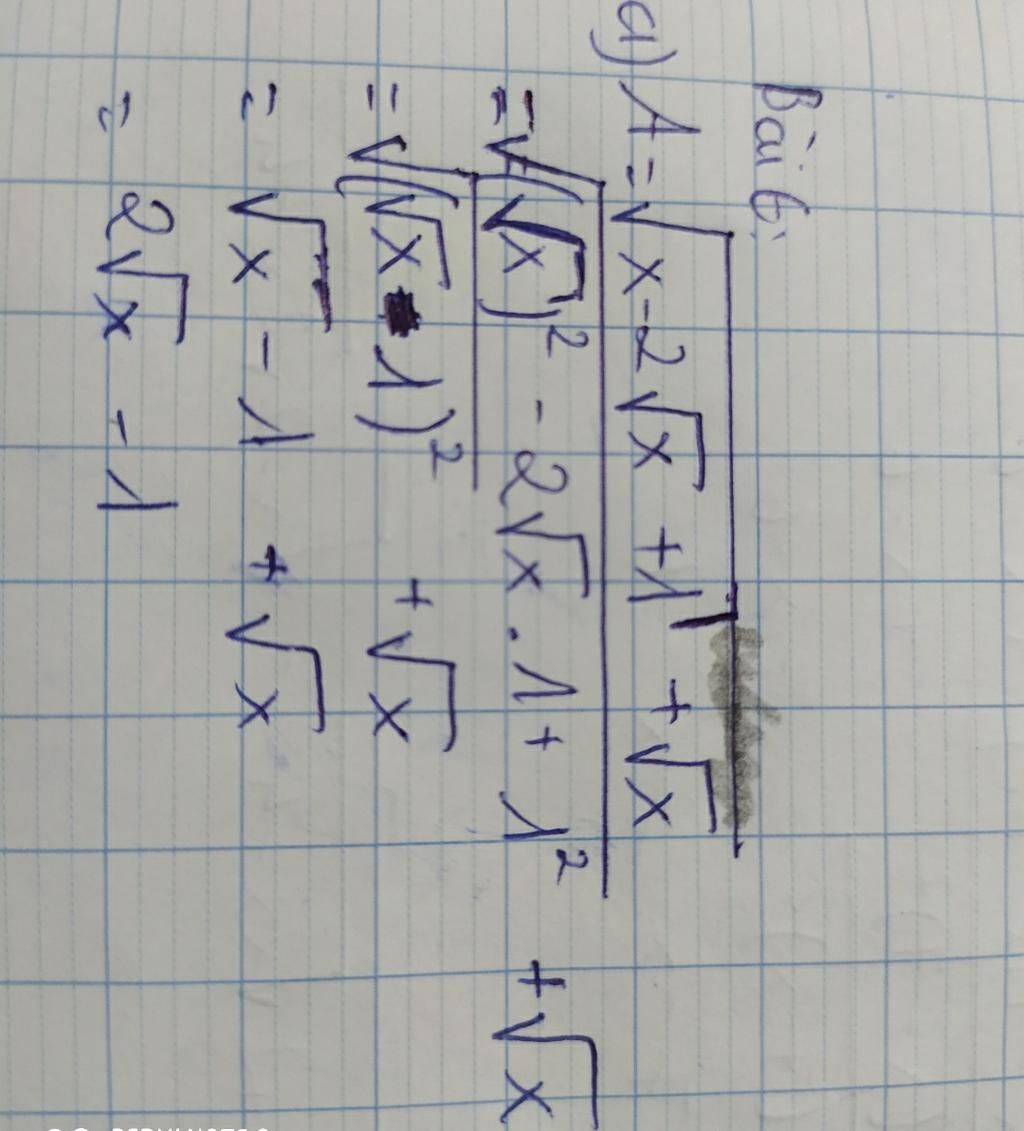 Bài 6:
a) A = √(x - 2√x + 1) + √x
= √((√x)² - 2√x . 1 + 1²) + √x
= √((√x - 1)²) + √x
= √x - 1 + √x
= 2√x - 1